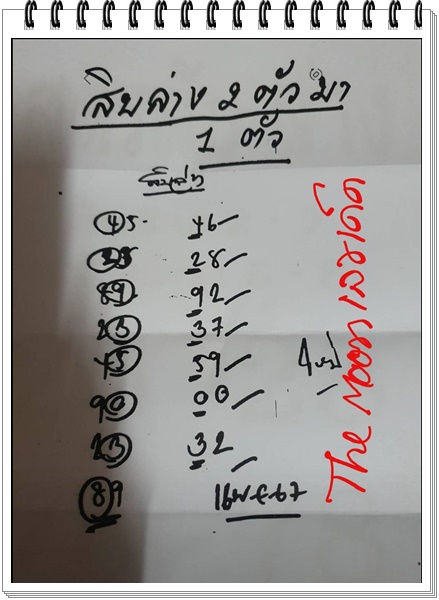 สิบล่าง 2 ตัว มา
1 ตัว
45 46
28
89 92
23 37
45 59
90 00
23 32
89 16 พ.ย 67
The Moon เลขเด็ด